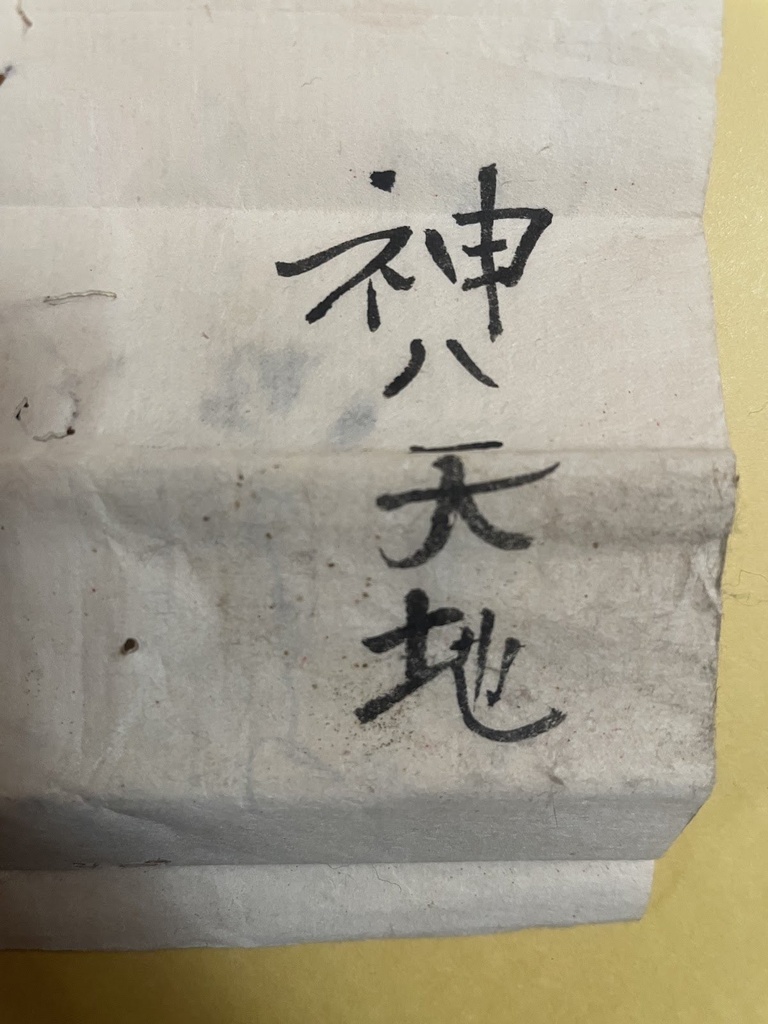 神ハ天地